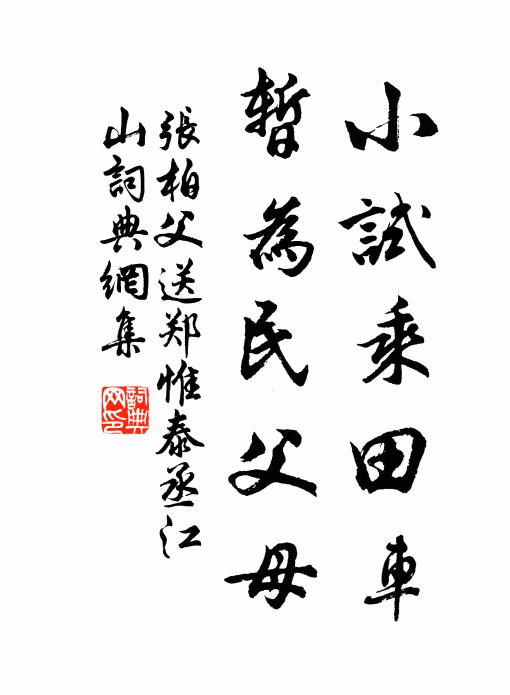 小試乘田車
暫為民父母
張柏父送郑惟泰丞江
山詞典網集
詞典
网印